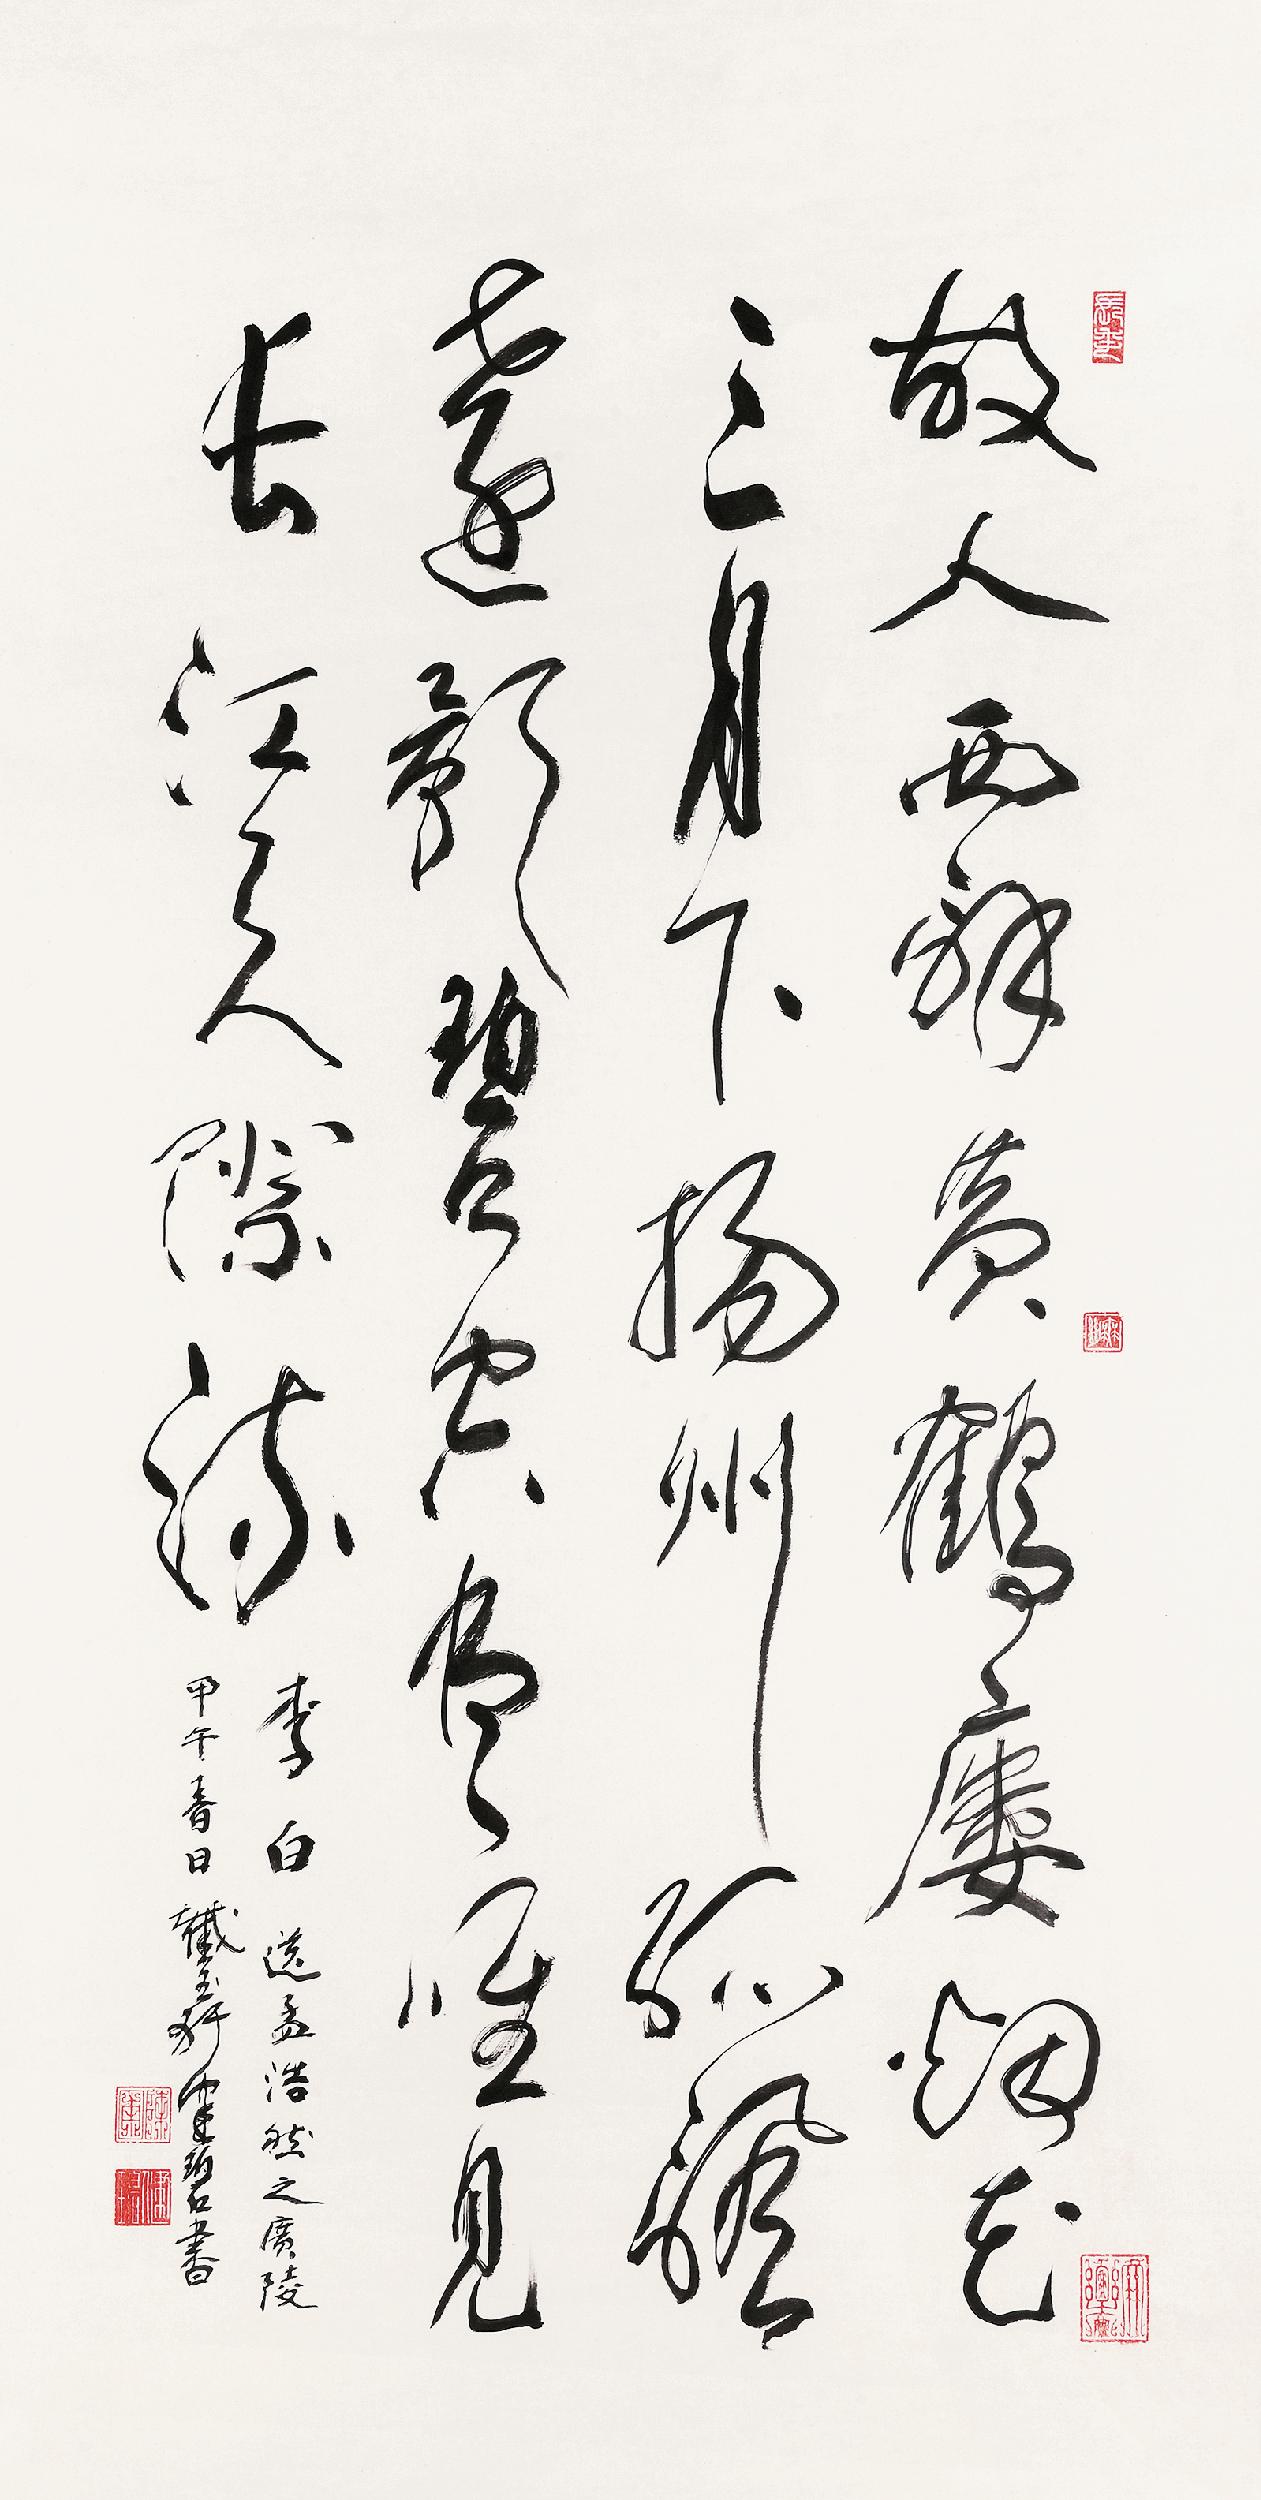 故人西辭黃鶴廔烟花
三月下揚州孤颿
遠影碧空盡唯見
長江天際流
李白 送孟浩然之廣陵
甲午春日 碧書